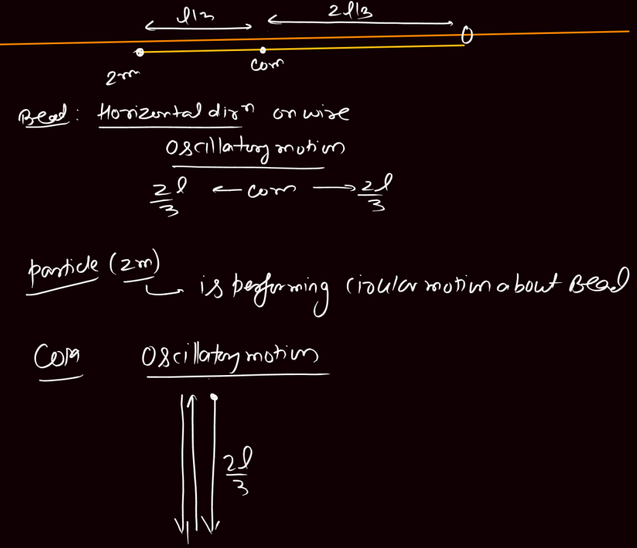 l/3 2l/3
2m com
Bead: Horizontal dirⁿ on wire
Oscillatory motion
2l/3 ← com → 2l/3
particle (2m)
is performing Circular motion about Bead
COM Oscillatory motion
2l/3